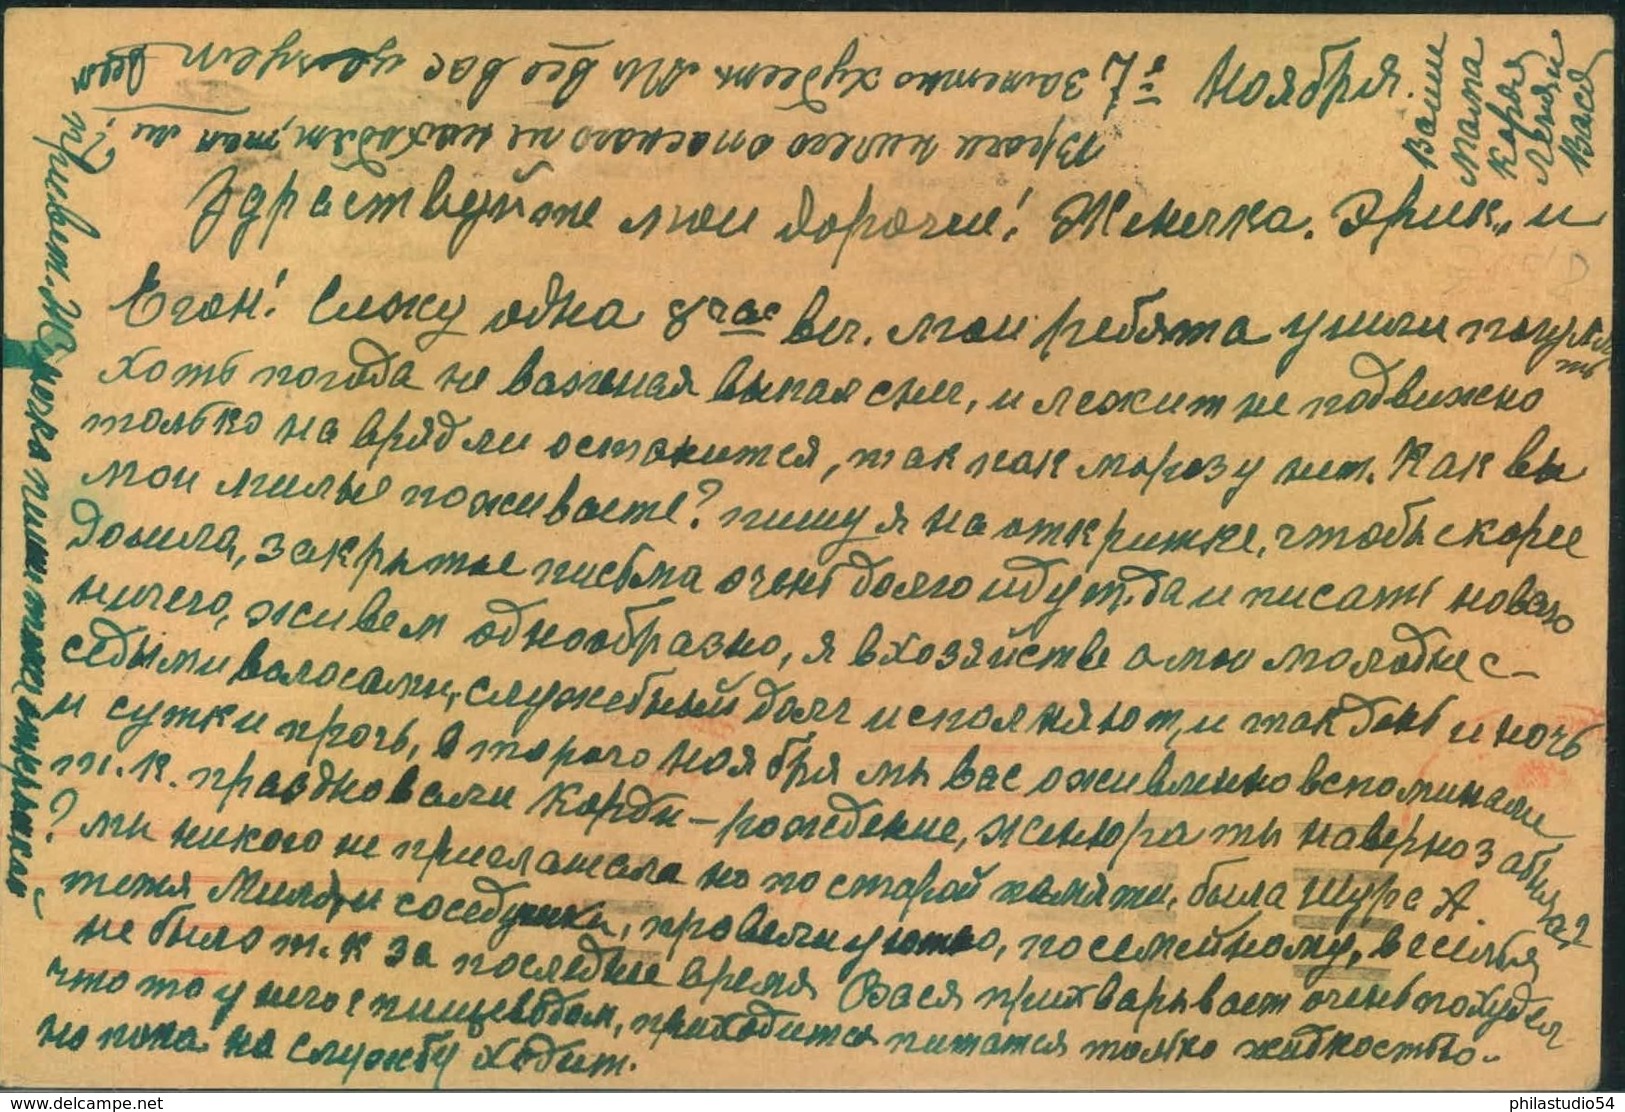 7 Ноября.
Здраствуйте мои дорогие! Женечка, Эрик, и
Егон! Сижу одна 8 час веч. мои ребята ушли погулять
хоть погода не важная выпал снег, и лежит не подвижно
только на врядли останится, так как морозу нет. Как вы
мои милые поживаете? пишу я на открытке, чтобы скорее
дошла, закрытые письма очень долго идут, да и писать нового
ничего, живем однообразно, я в хозяйстве а мои молодые с-
седыми волосами, служебный долг исполняют, и так день и ночь
и сутки прочь, второго ноября мы вас оживленно вспоминали
т.к. праздновали Корди-рождение, Женюра ты наверно забыла?
? мы никого не приглашала но по старой памяти, была Шура А.
тетя Миля, и соседушка, провели уютно, посемейному, веселья
не было т.к за последние время Вася прихварывает очень похудел
что то у него с пищеводом, приходится питатся только жидкостью-
но пока на службу ходит.
Врачи ничего опасного не находят, так ли?
Заметно худеет. Мы все вас целуем
Ваши
мама
Каря
Леня и
Вася
всем привет. Женюка пиши тоже открытки-
www.delcampe.net
philastudio54